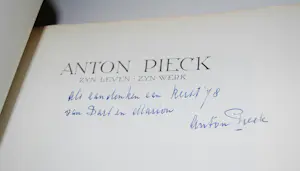 ANTON PIECK
ZYN LEVEN / ZYN WERK
Als aandenken aan Kerst '78
van Bart en Marion
Anton Pieck